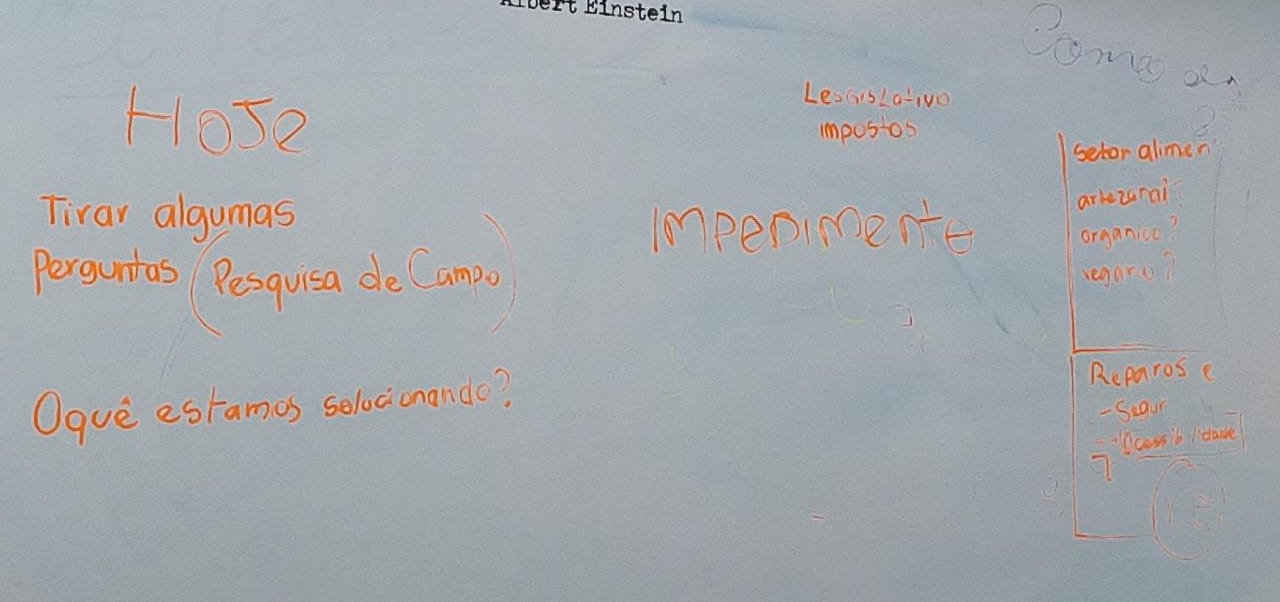 Albert Einstein
Como
HOJe
Tirar algumas
Perguntas (Pesquisa de Campo)
Oquê estamos solucionando?
LesGisLativo
impostos
IMPeDiMente
Setor alimen
artezanal?
organico?
vegano?
Reparos e
- Segur
- Acessibilidade